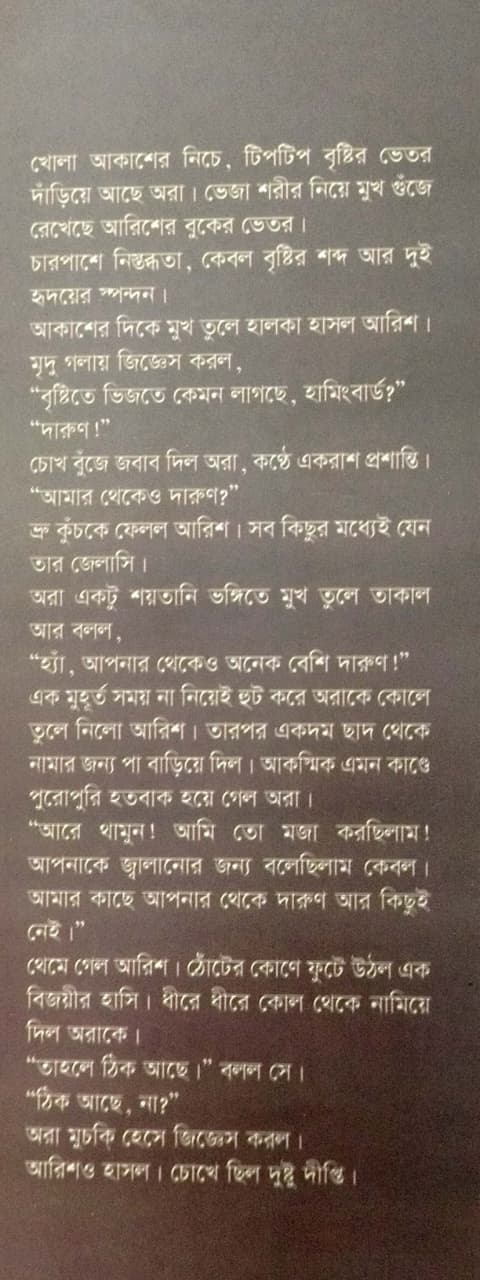 খোলা আকাশের নিচে, টিপটিপ বৃষ্টির ভেতর
দাঁড়িয়ে আছে অরা। ভেজা শরীর নিয়ে মুখ গুঁজে
রেখেছে আরিশের বুকের ভেতর।
চারপাশে নিস্তব্ধতা, কেবল বৃষ্টির শব্দ আর দুই
হৃদয়ের স্পন্দন।
আকাশের দিকে মুখ তুলে হালকা হাসল আরিশ।
মৃদু গলায় জিজ্ঞেস করল,
“বৃষ্টিতে ভিজতে কেমন লাগছে, হামিংবার্ড?”
“দারুণ!”
চোখ বুঁজে জবাব দিল অরা, কণ্ঠে একরাশ প্রশান্তি।
“আমার থেকেও দারুণ?”
ভ্রু কুঁচকে ফেলল আরিশ। সব কিছুর মধ্যেই যেন
তার জেলাসি।
অরা একটু শয়তানি ভঙ্গিতে মুখ তুলে তাকাল
আর বলল,
“হ্যাঁ, আপনার থেকেও অনেক বেশি দারুণ!”
এক মুহূর্ত সময় না নিয়েই হুট করে অরাকে কোলে
তুলে নিলো আরিশ। তারপর একদম ছাদ থেকে
নামার জন্য পা বাড়িয়ে দিল। আকস্মিক এমন কাণ্ডে
পুরোপুরি হতবাক হয়ে গেল অরা।
“আরে থামুন! আমি তো মজা করছিলাম!
আপনাকে জ্বালানোর জন্য বলেছিলাম কেবল।
আমার কাছে আপনার থেকে দারুণ আর কিছুই
নেই।”
থেমে গেল আরিশ। ঠোঁটের কোণে ফুটে উঠল এক
বিজয়ীর হাসি। ধীরে ধীরে কোল থেকে নামিয়ে
দিল অরাকে।
“তাহলে ঠিক আছে।” বলল সে।
“ঠিক আছে, না?”
অরা মুচকি হেসে জিজ্ঞেস করল।
আরিশও হাসল। চোখে ছিল দুষ্টু দীপ্তি।